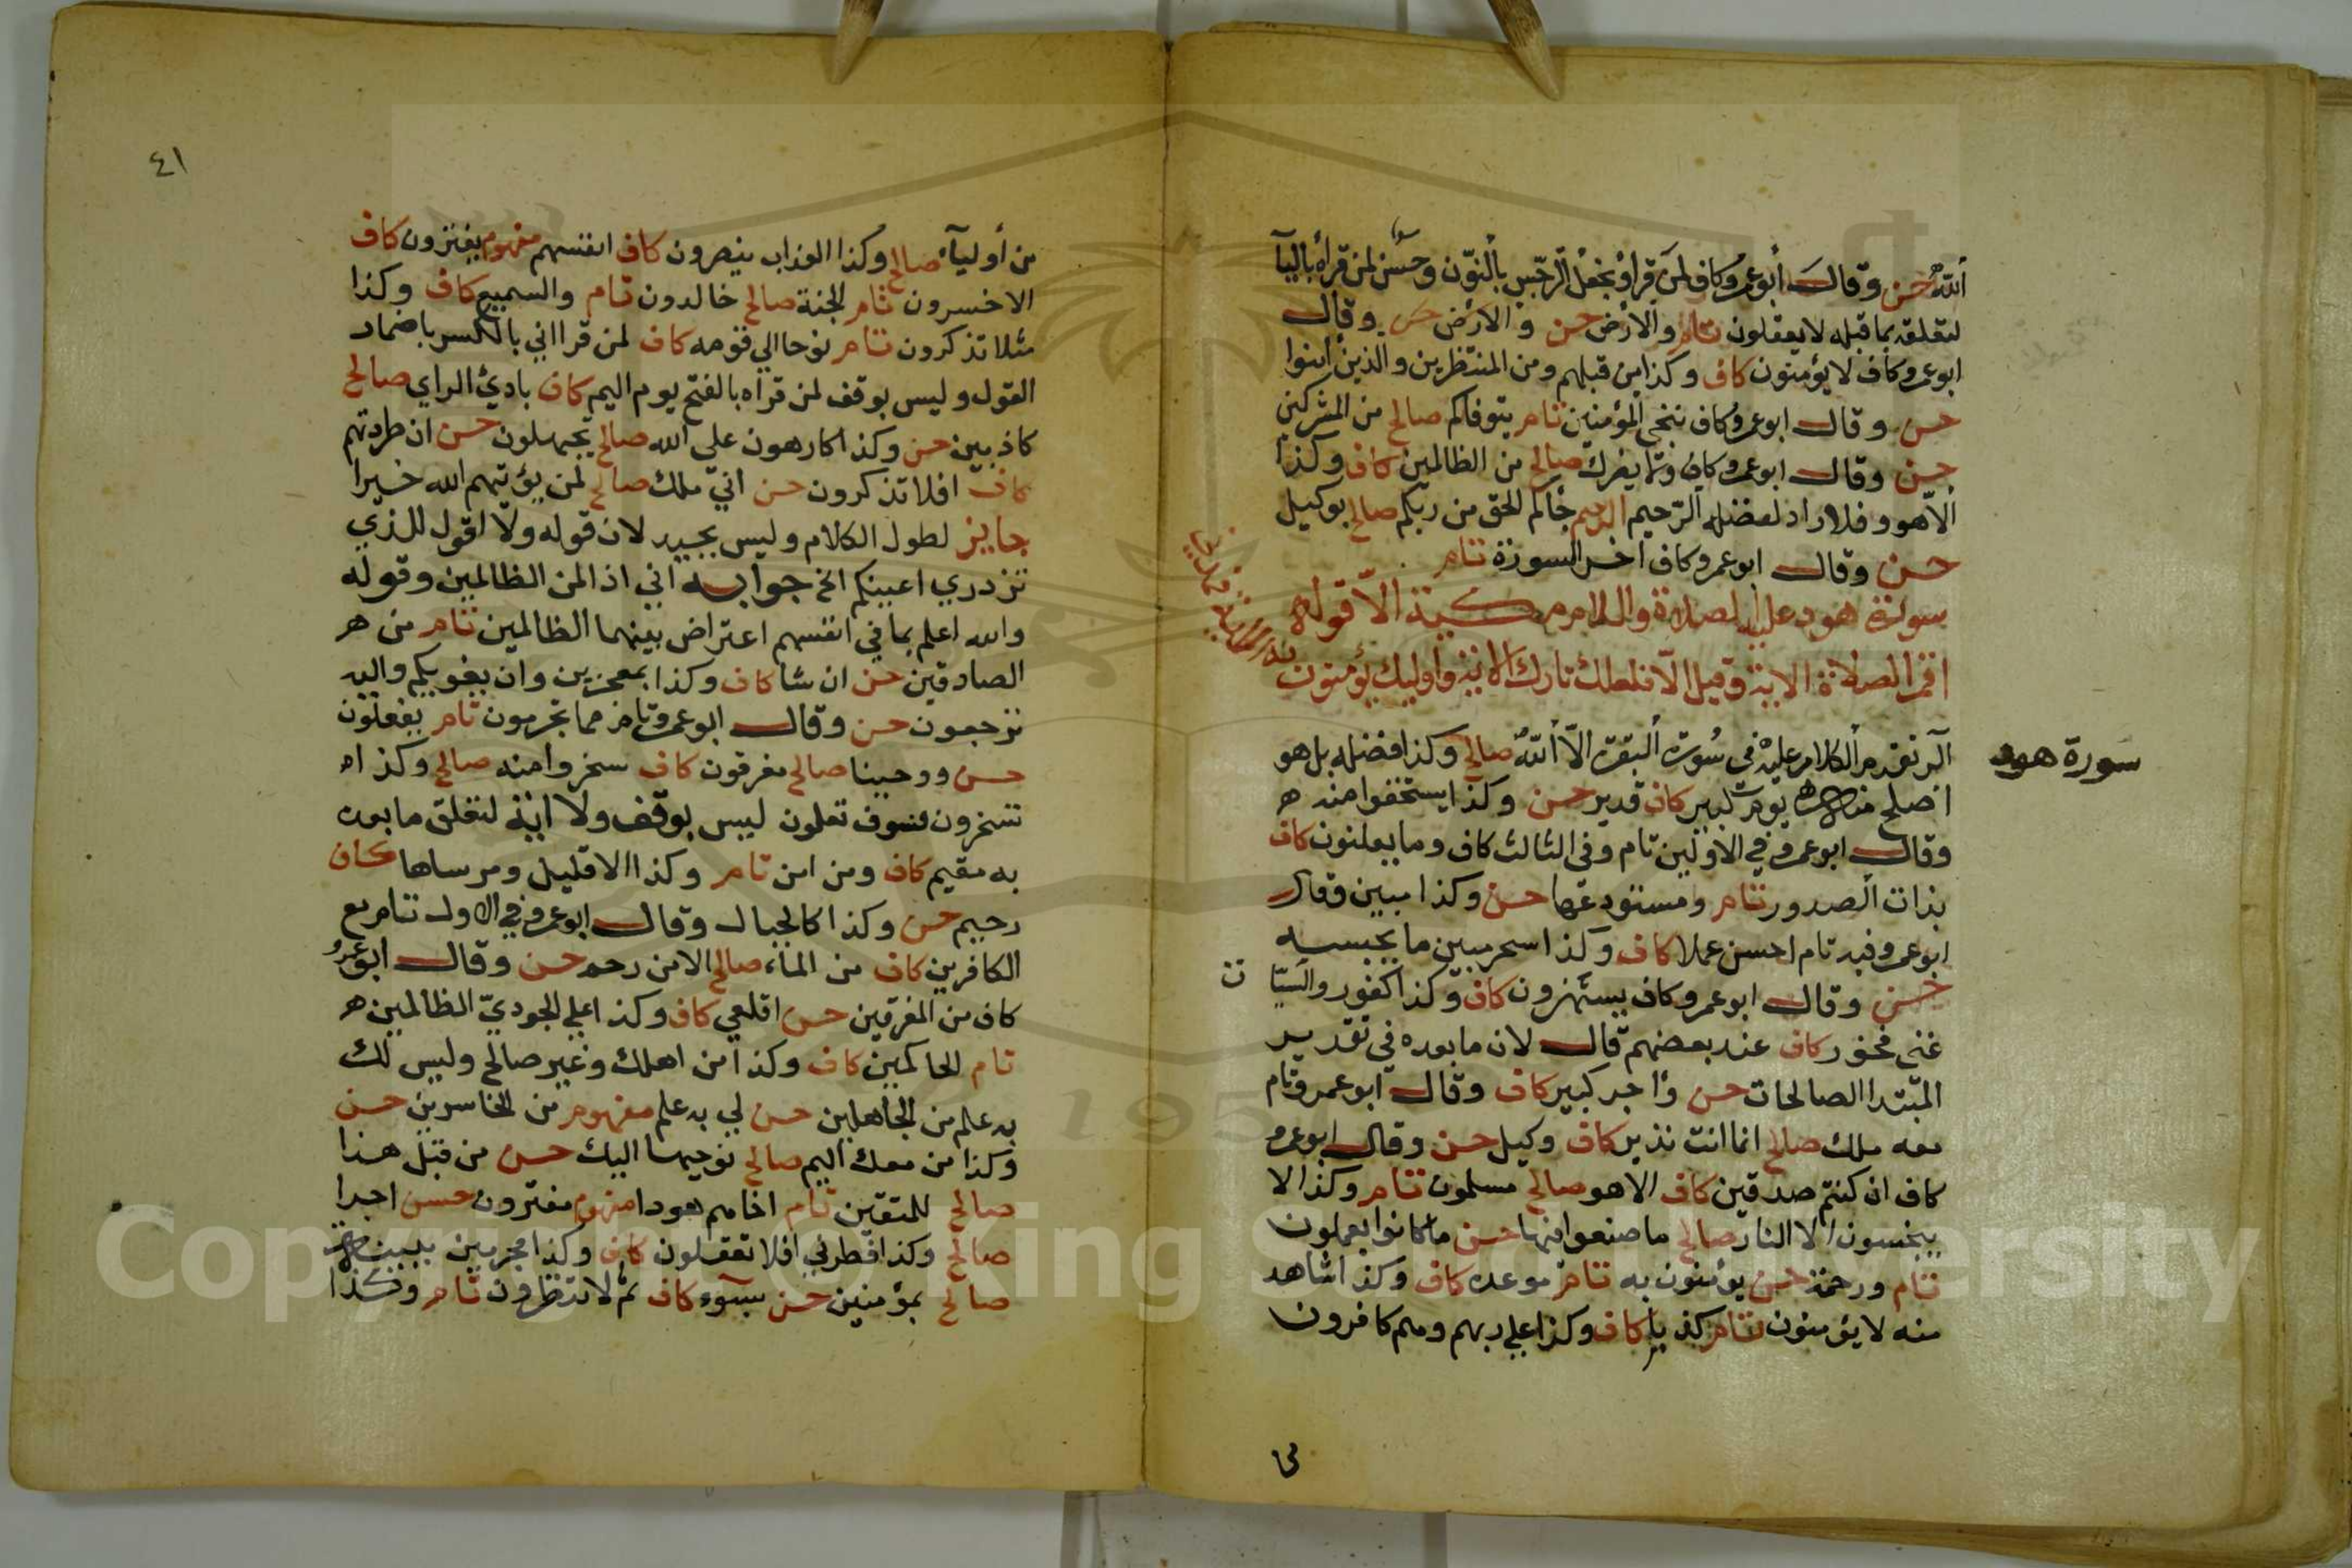 الله حسن وقال أبو عمرو كاف لمن قرأ ونجعل الرجس بالنون وحسن لمن قرأه باليآ
لتعلقه بما قبله لا يعقلون تام والارض حسن و الارض حسن وقال
ابو عمرو كاف لا يؤمنون كاف وكذا من قبلهم ومن المنتظرين والذين أمنوا
حسن وقال ابو عمرو كاف ننجي المؤمنين تام يتوفاكم صالح من المشركين
حسن وقال ابو عمرو كاف ولا يضرك صالح من الظالمين كاف وكذا
ألا هو و فلا راد لفضله الرحيم جأكم الحق من ربكم صالح بوكيل
حسن وقال ابو عمرو كاف اخر السورة تام
سورة هود عليه الصلاة والسلام مكية الا قوله
اقم الصلاة الاية وقيل الا فلعلك تارك الاية واوليك يؤمنون
سورة هود
آلر تقدم ألكلام عليه في سُورة ألبقرة الّا ألله صالح وكذا فضله بل هو
اصلح منه يوم كبير كاف قدير حسن وكذا يستخفوا منه
وقال ابو عمرو في الاولين تام وفي الثالث كاف وما يعلنون كاف
بذات الصدور تام ومستودعها حسن وكذا مبين وقال
ابو عمرو فيه تام احسن عملا كاف وكذا سحر مبين ما يحبسه
حسن وقال ابو عمرو كاف يستهزون كاف وكذا كفور والسيآ ت
عني فخور كاف عند بعضهم قال لان ما بعده في تقدير
المبتدا الصالحات حسن وأجر كبير كاف وقال ابو عمرو تام
معه ملك صالح انما انت نذير كاف وكيل حسن وقال ابو عمرو
كاف ان كنتم صدقين كاف الا هو صالح مسلمون تام وكذا لا
يبخسون الا النار صالح ما صنعوا فيها حسن ما كانوا يعملون
تام ورحمة حسن يؤمنون به تام موعده كاف وكذا شاهد
منه لا يؤمنون تام كذبا كاف وكذا علي ربهم وهم كافرون
٤١
من أوليآء صالح وكذا العذاب يبصرون كاف انفسهم مفهوم يفترون كاف
الاخسرون تام الجنة صالح خالدون تام والسميع كاف وكذا
مثلا تذكرون تام نوحا الي قومه كاف لمن قرا اني بالكسر باضمار
القول وليس بوقف لمن قراه بالفتح يوم اليم كاف بادئ الراي صالح
كاذبين حسن وكذا كارهون علي الله صالح تجهلون حسن ان طردتهم
كاف افلا تذكرون حسن اني ملك صالح لمن يؤتيهم الله خيرا
جايز لطول الكلام وليس بجيد لان قوله ولا اقول للذي
تزدري اعينكم الخ جوابه اني اذا لمن الظالمين وقوله
والله اعلم بما في انفسهم اعتراض بينهما الظالمين تام من
الصادقين حسن ان شا كاف وكذا بمعجزين وان يغويكم واليه
ترجعون حسن وقال ابو عمرو تام مما تجرمون تام يفعلون
حسن ووحينا صالح مغرقون كاف سخروا منه صالح وكذا
تسخرون فسوف تعلمون ليس بوقف ولا اية لتعلق ما بعده
به مقيم كاف ومن امن تام وكذا الا قليل ومرساها كاف
رحيم حسن وكذا كالجبال وقال ابو عمرو في الاول تام مع
الكافرين كاف من المآء صالح الا من رحم حسن وقال ابو عمرو
كاف من المغرقين حسن اقلعي كاف وكذا علي الجودي الظالمين
تام الحاكمين كاف وكذا من اهلك وغير صالح وليس لك
به علم من الجاهلين حسن لي به علم مفهوم من الخاسرين حسن
وكذا من معك اليم صالح نوحيها اليك حسن من قبل هذا
صالح للمتقين تام اخاهم هودا مفهوم مفترون حسن اجرا
صالح وكذا فطرني افلا تعقلون كاف وكذا مجرمين ببينة
صالح بمؤمنين حسن بسوء كاف ثم لا تنظرون تام وكذا